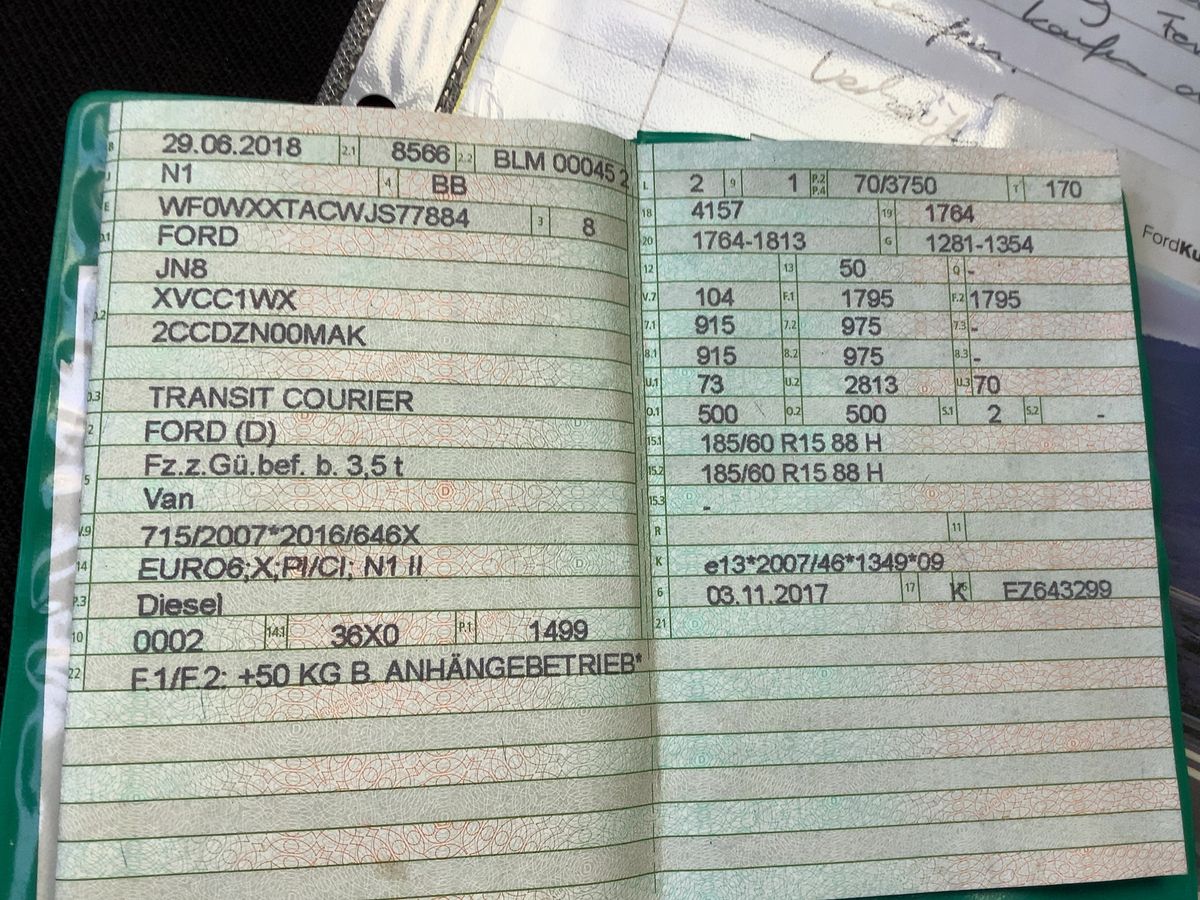 Verkäuf
kaufen
FordKu
B 29.06.2018 2.1 8566 2.2 BLM 00045 2
J N1 4 BB
E WF0WXXTACWJS77884 3 8
D.1 FORD
JN8
D.2 XVCC1WX
2CCDZN00MAK
D.3 TRANSIT COURIER
2 FORD (D)
5 Fz.z.Gü.bef. b. 3,5 t
Van
V.9 715/2007*2016/646X
14 EURO6;X;PI/CI; N1 II
P.3 Diesel
10 0002 14.1 36X0 P.1 1499
22 F.1/F.2: +50 KG B. ANHÄNGEBETRIEB*
L 2 9 1 P.2 P.4 70/3750 T 170
18 4157 19 1764
20 1764-1813 G 1281-1354
12 13 50 Q -
V.7 104 F.1 1795 F.2 1795
7.1 915 7.2 975 7.3 -
8.1 915 8.2 975 8.3 -
U.1 73 U.2 2813 U.3 70
O.1 500 O.2 500 S.1 2 S.2 -
15.1 185/60 R15 88 H
15.2 185/60 R15 88 H
15.3 -
R 11
K e13*2007/46*1349*09
6 03.11.2017 17 K 16 EZ643299
21